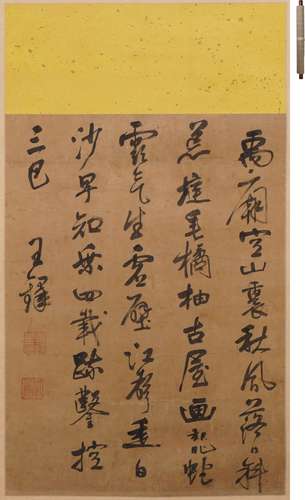 禹廟空山裏秋風落日斜
荒庭垂橘柚古屋画龍蛇
雲气生虛壁江聲走白
沙早知乘四載疏鑿控
三巴
王鐸